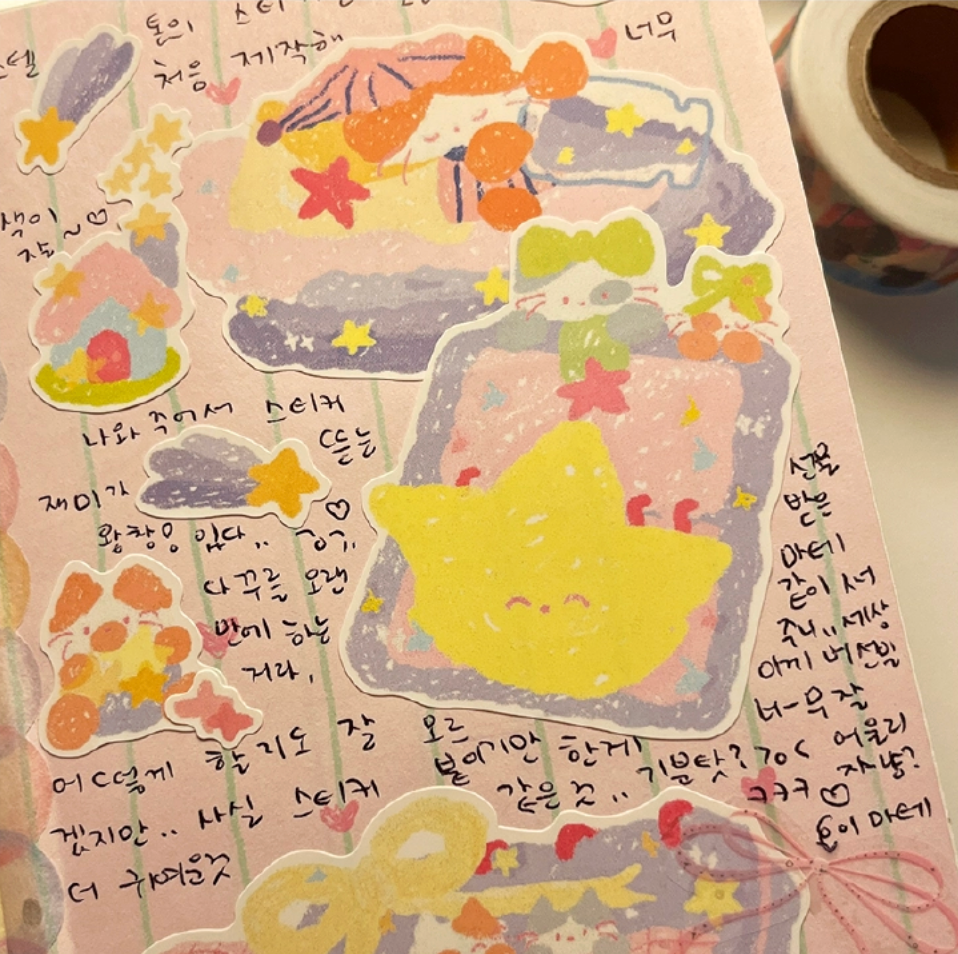 스텔
톤의 스티
처음 제작해
너무
색이~♡
나와 주어서 스티커
뜯는
재미가
왕창 있다.. ♡
다꾸를 오랜
만에 하는
거라,
어떻게 할지도 잘 모르
겠지만.. 사실 스티커
붙이기만 한게
더 귀여운것
같은 것..
기분탓?
선물
받은
마테
같이 써
주니.. 세상
아끼
너-무 잘
어울리
자냥?
ㅋㅋㅋ♡
마테